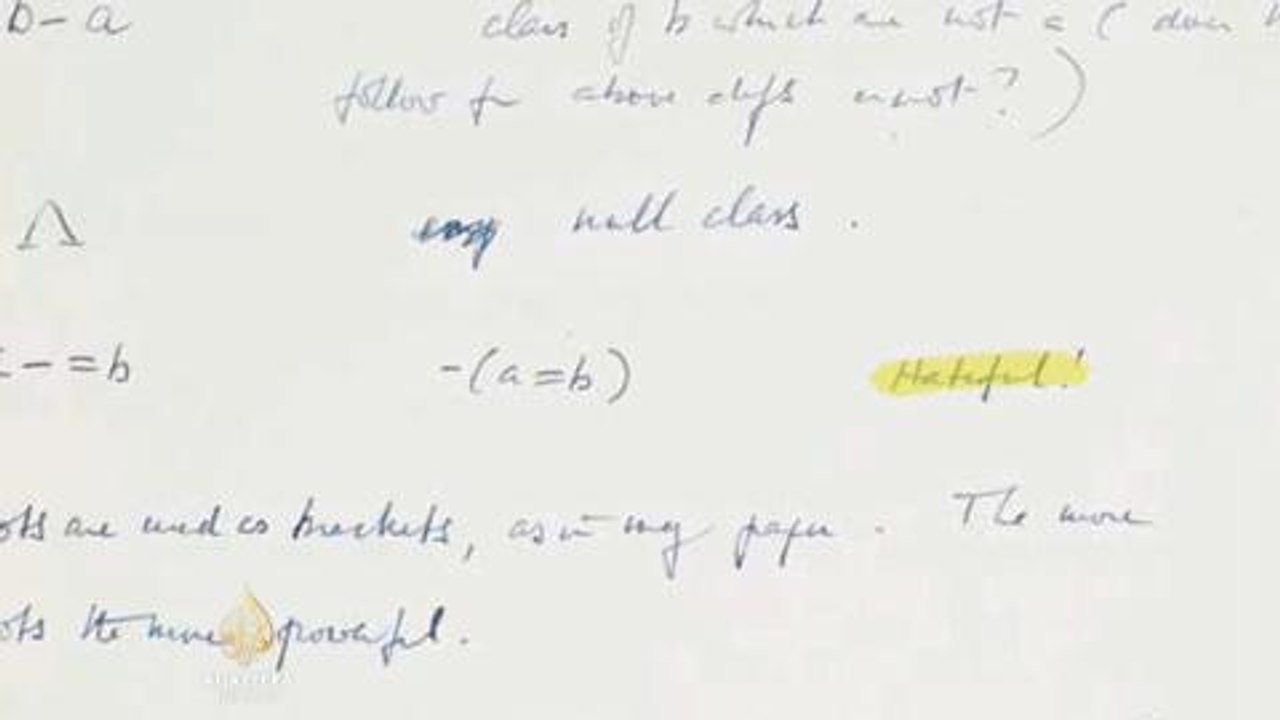 b - a class of b which are not a (does
follow fr above defs or not?)
Λ null class.
- = b -(a = b) Hateful!
ots are used as brackets, as in my paper. The more
ots the more powerful.